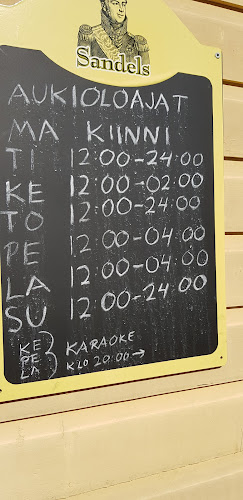 Sandels
AUKIOLOAJAT
MA KIINNI
TI 12:00-24:00
KE 12:00-02:00
TO 12:00-24:00
PE 12:00-04:00
LA 12:00-04:00
SU 12:00-24:00
KE
PE
LA
KARAOKE
KLO 20:00→